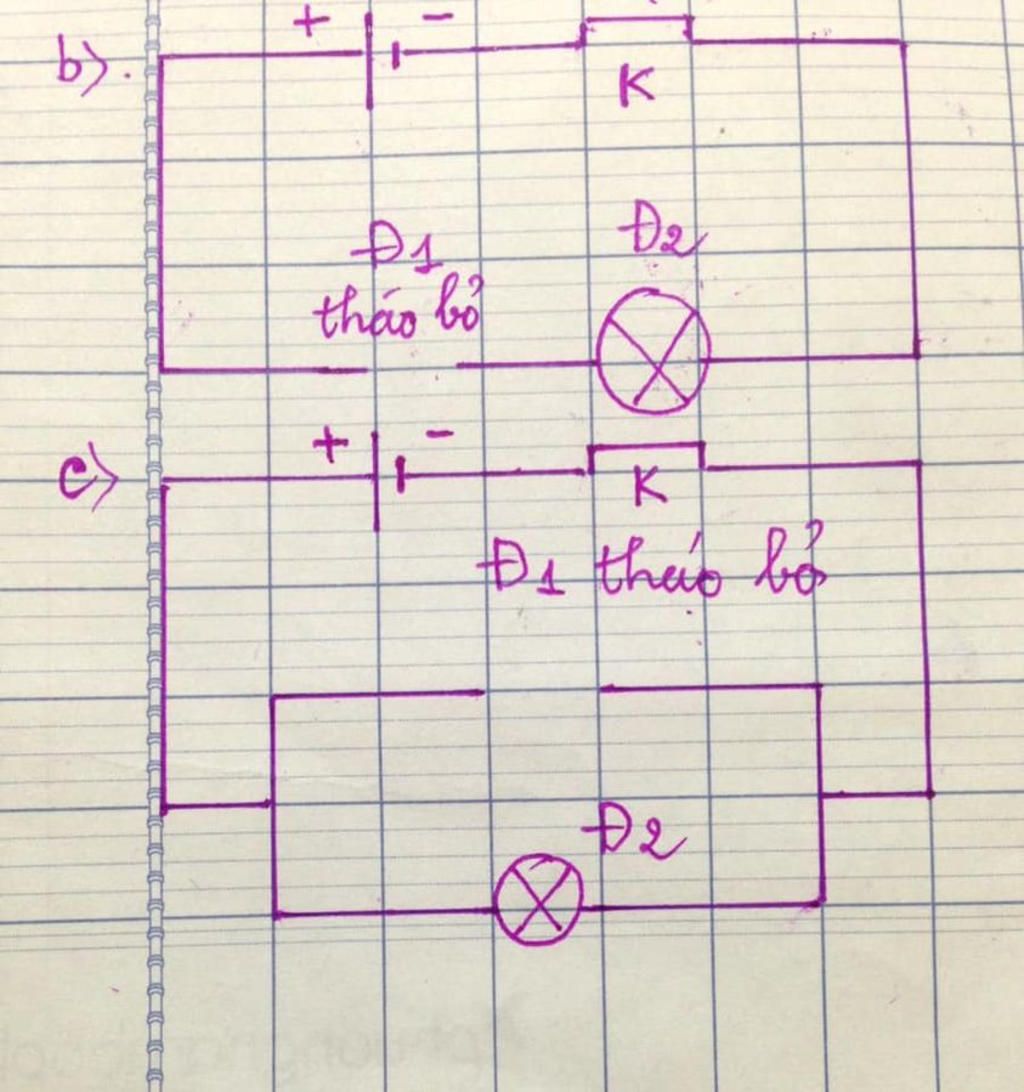 b).
+ -
K
Đ1
tháo bỏ
Đ2
c)
+ -
K
Đ1 tháo bỏ
Đ2